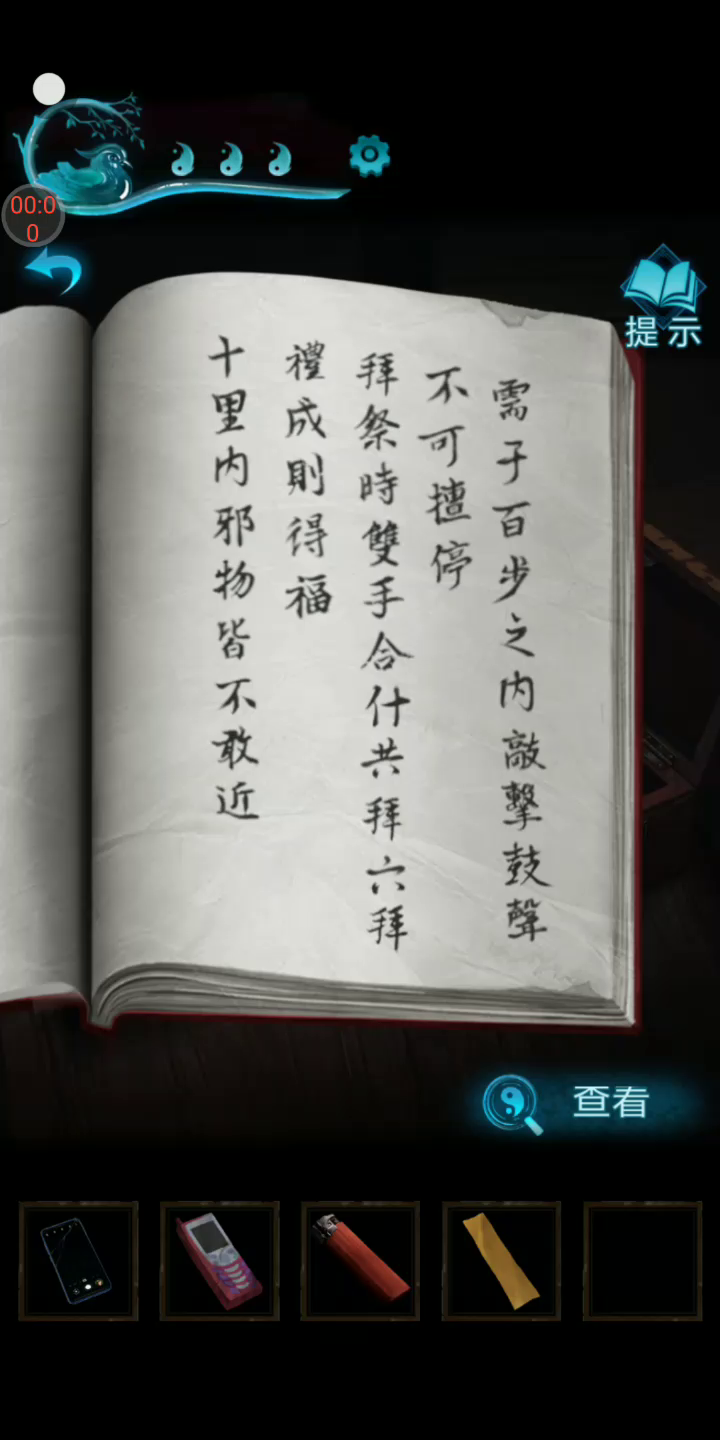 00:0
0
提示
需于百步之内敲擊鼓聲
不可擅停
拜祭時雙手合什共拜六拜
禮成則得福
十里内邪物皆不敢近
查看